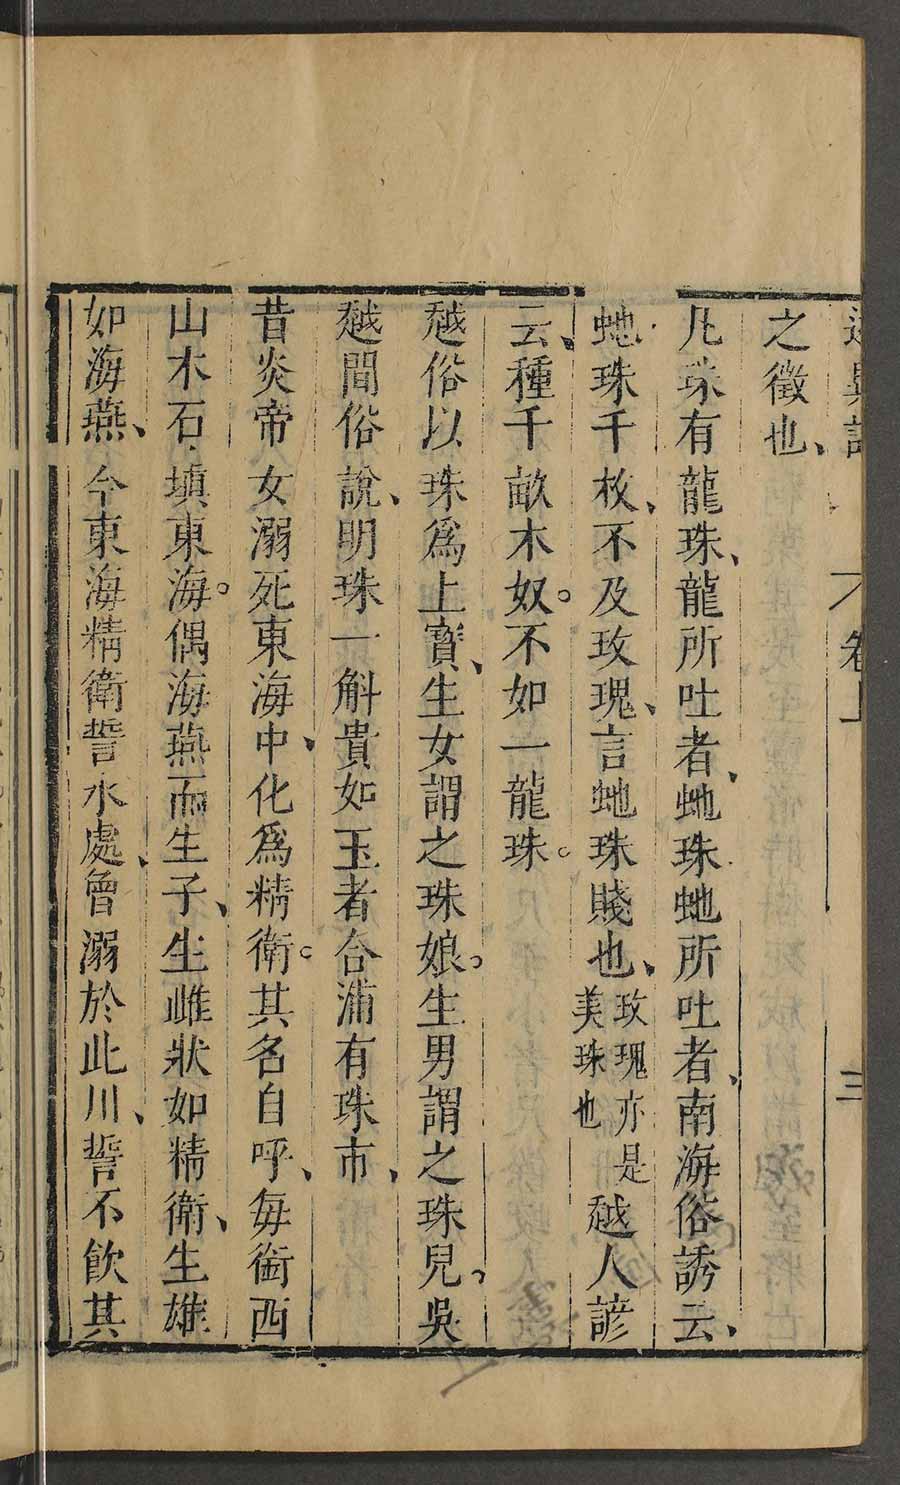 述異記 卷上 三
之徵也、
凡珠有龍珠、龍所吐者、虵珠虵所吐者、南海俗誘云、
虵珠千枚、不及玫瑰、言虵珠賤也、玫瑰亦是美珠也越人諺
云、種千畝木奴。不如一龍珠。
越俗以珠爲上寳、生女謂之珠娘。生男謂之珠兒。吳
越間俗說、明珠一斛貴如玉者合浦有珠市、
昔炎帝女溺死東海中、化爲精衛。其名自呼、每銜西
山木石、填東海。偶海燕而生子、生雌狀如精衛、生雄
如海燕、今東海精衛誓水處、曾溺於此川、誓不飲其